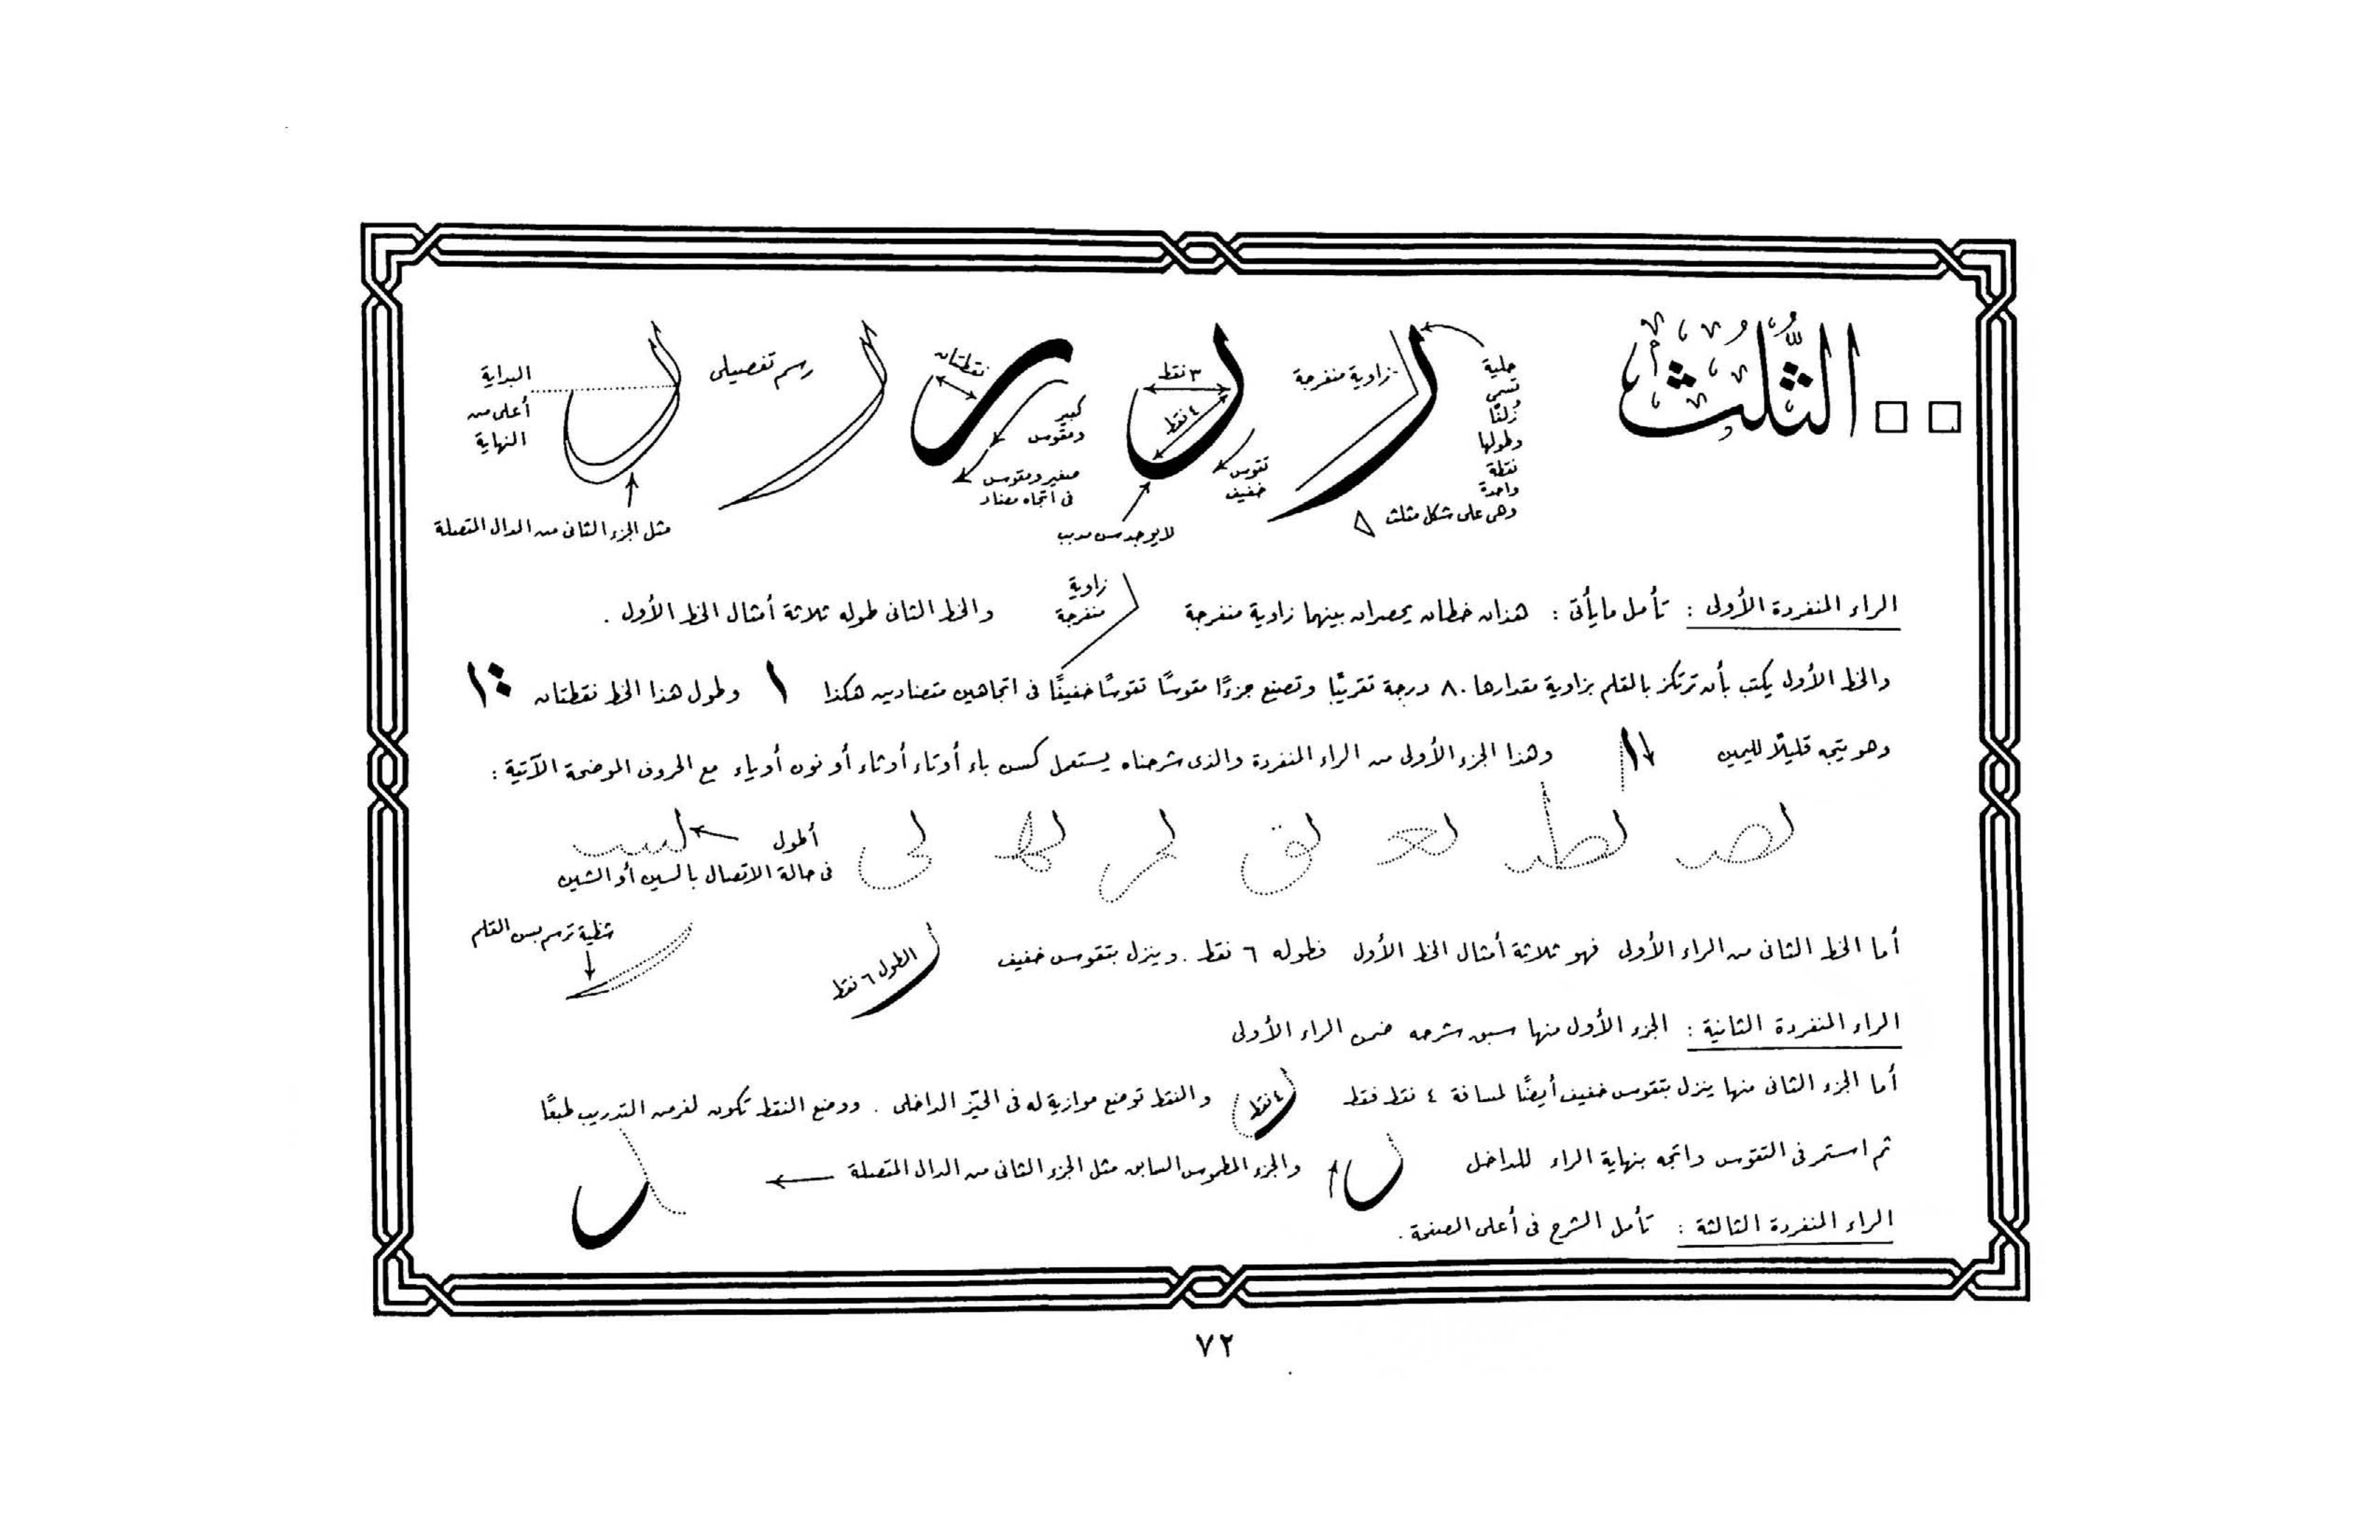 الثُّلُث
حلية
تسمى
زلفًا
وطولها
نقطة
واحدة
وهى على شكل مثلث
زاوية منفرجة
٣ نقط
٤ نقط
تقوس
خفيف
لا يوجد سن مدبب
نقطتان
كبير
ومقوس
صغير ومقوس
فى اتجاه مضاد
رسم تفصيلى
البداية
أعلى من
النهاية
مثل الجزء الثانى من الدال المتصلة
الراء المنفردة الأولى : تأمل ما يأتى : هذان خطان يحصران بينهما زاوية منفرجة زاوية منفرجة والخط الثانى طوله ثلاثة أمثال الخط الأول .
والخط الأول يكتب بأن ترتكز بالقلم بزاوية مقدارها ٨٠ درجة تقريبًا وتصنع جزءًا مقوسًا تقوسًا خفيفًا فى اتجاهين متضادين هكذا وطول هذا الخط نقطتان
وهو يتجه قليلًا لليمين وهذا الجزء الأولى من الراء المنفردة والذى شرحناه يستعمل كسن باء أو تاء أو ثاء أو نون أو ياء مع الحروف الموضحة الآتية :
أطول
فى حالة الاتصال بالسين أو الشين
أما الخط الثانى من الراء الأولى فهو ثلاثة أمثال الخط الأول فطوله ٦ نقط . وينزل بتقوس خفيف
الطول ٦ نقط
شظية ترسم بسن القلم
الراء المنفردة الثانية : الجزء الأول منها سبق شرحه ضمن الراء الأولى
أما الجزء الثانى منها ينزل بتقوس خفيف أيضًا لمسافة ٤ نقط فقط ٤ نقط والنقط توضع موازية له فى الحيّز الداخلى . ووضع النقط تكون لغرض التدريب طبعًا
ثم استمر فى التقوس واتجه بنهاية الراء للداخل والجزء المطموس السابق مثل الجزء الثانى من الدال المتصلة
الراء المنفردة الثالثة : تأمل الشرح فى أعلى الصفحة .
٧٢